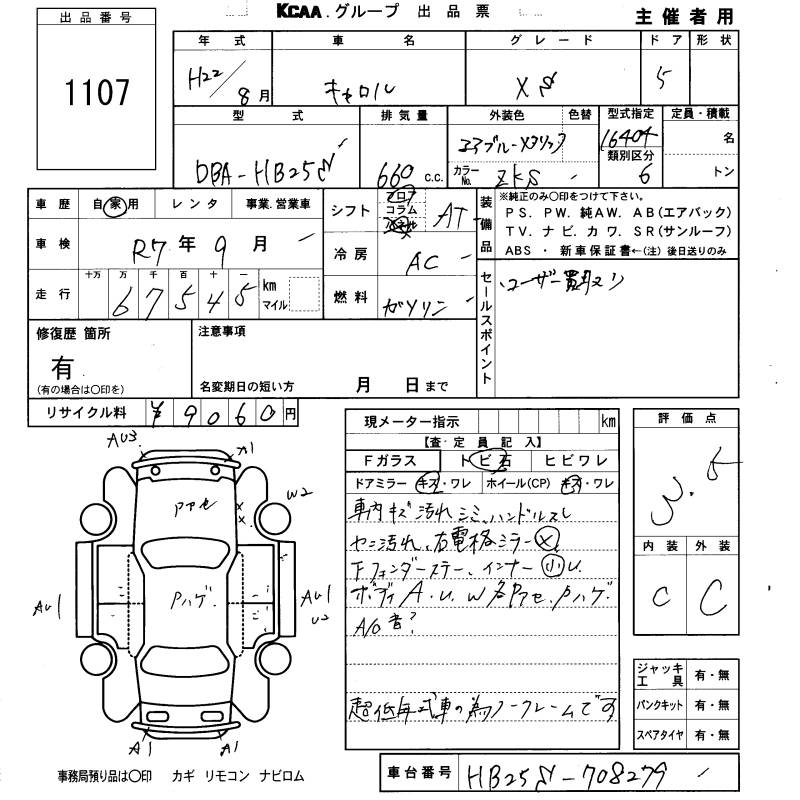 KCAA.グループ 出品票
主催者用
出品番号
1107
年式 車名 グレード ドア 形状
H22/8月 キャロル XS 5
型式 排気量 外装色 色替 型式指定 定員・積載
DBA-HB25S 660 c.c. カラーNo. ZKS 16404 名
類別区分 6 トン
車歴 自家用 レンタ 事業.営業車
車検 R7年9月
走行 十万 万 千 百 十 一
67545 km マイル
シフト フロア コラム インパネ AT
冷房 AC
燃料 ガソリン
装備品
※純正のみ〇印をつけて下さい。
PS. PW. 純AW. AB(エアバック)
TV. ナビ. カワ. SR(サンルーフ)
ABS ・ 新車保証書←(注) 後日送りのみ
セールスポイント
ユーザー買取り
修復歴 箇所
有
(有の場合は〇印を)
注意事項
名変期日の短い方 月 日まで
リサイクル料 ¥9060円
現メーター指示 km
【査・定・員・記・入】
Fガラス トビ石 ヒビワレ
ドアミラー キズ・ワレ ホイール(CP) キズ・ワレ
車内キズ汚れシミ、ハンドルスレ
シミ汚れ、右電格ミラー(X)
Fフェンダーステー、インナー小U
ボディA.U.W各Pアセ、Pハゲ
超低年式車の為ノークレームです
評価点
3.5
内装 外装
C C
ジャッキ工具 有・無
パンクキット 有・無
スペアタイヤ 有・無
AU3
A1
Pアセ
W2
X
X
Pハゲ
AU1
AU1
U2
A1
A1
事務局預り品は〇印 カギ リモコン ナビロム
車台番号 HB25S-708279